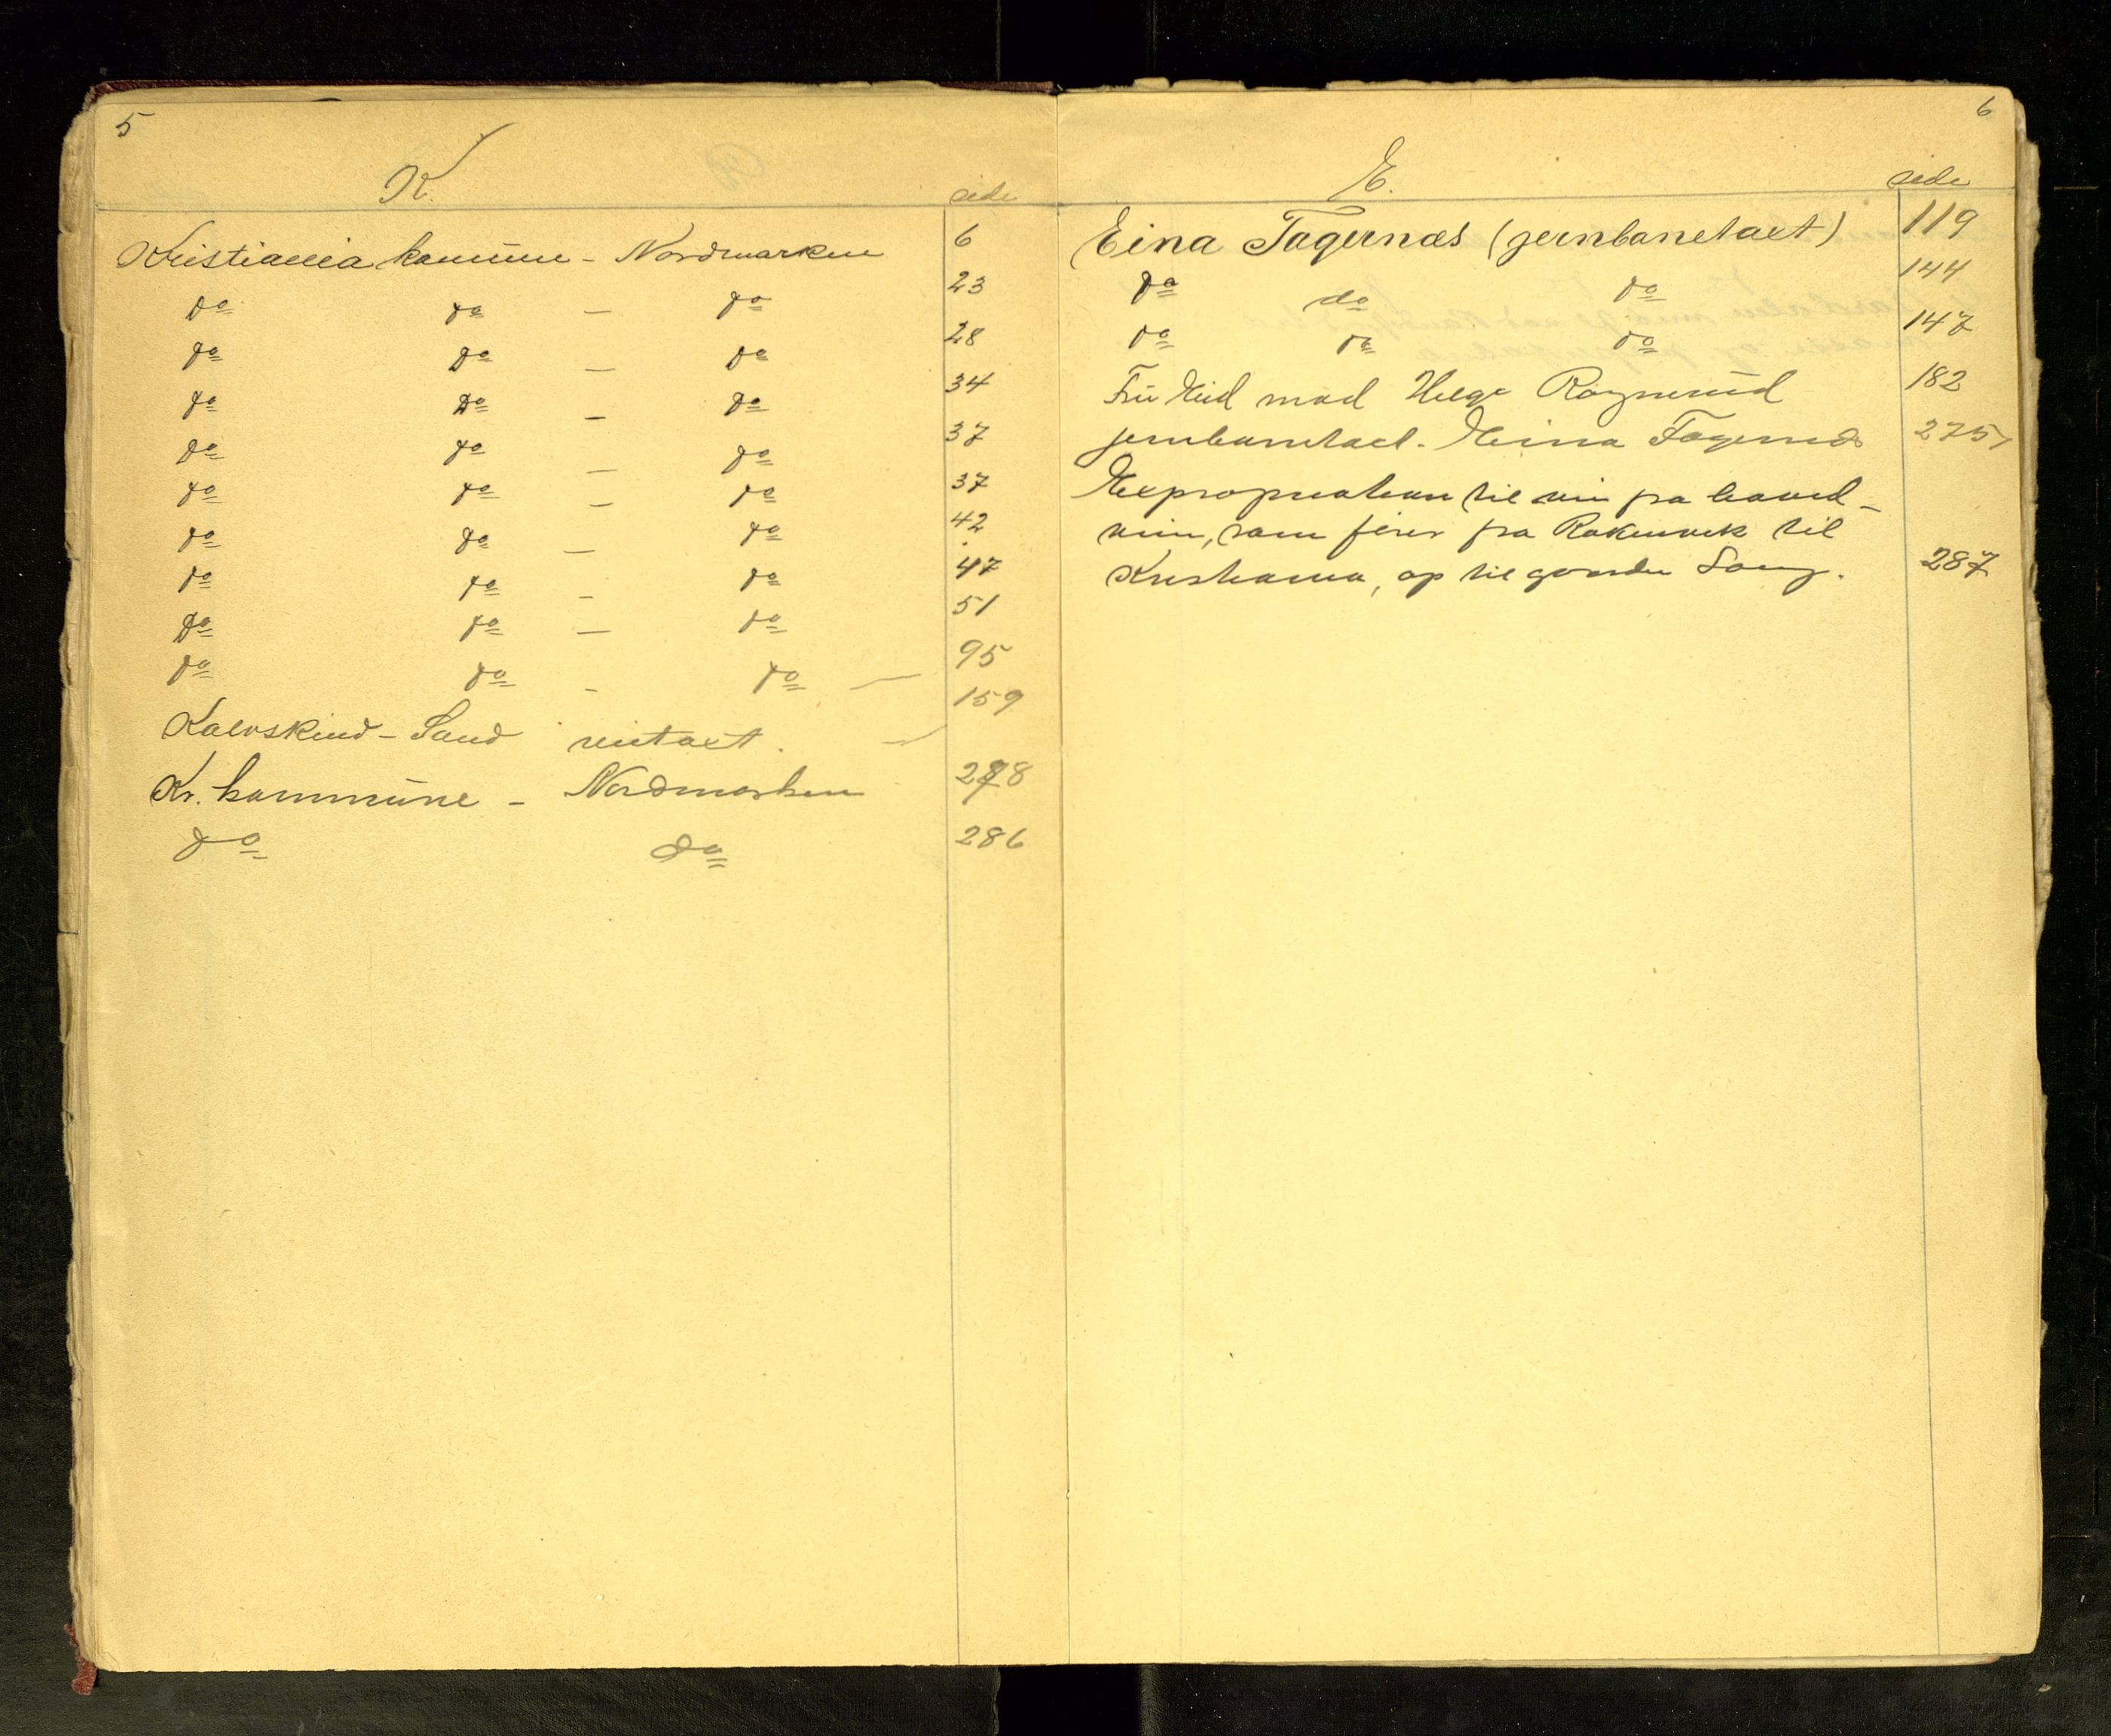 5
K.
side
Kristiania kommune - Nordmarken 6
do do — do 23
do do — do 28
do do — do 34
do do — do 37
do do — do 37
do do — do 42
do do - do 47
do do — do 51
do do - do — 95
Kalvskind - Sand veitaxt. — 159
Kr. kommune - Nordmarken 278
do do 286
6
E.
side
Eina Fagernæs (jernbanetaxt) 119
do do do 144
do do do 147
Fru Eid mod Helge Røgnerud 182
jernbanetaxt. Eina Fagernæs 275
Expropriation til vei fra hoved-
veien, som fører fra til
Kristiania, op til gaarden 287